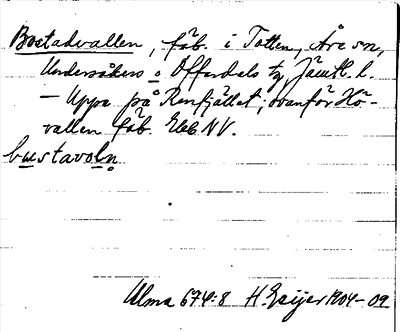 Bustadvallen, fäb. i Totten, Åre sn,
Undersåkers o Offerdals tg, Jämtl. l.
– Uppe på Renfjället, ovanför Hö-
vallen fäb. Ekbl NV.
bustavoln
Ulma 674:8 H. Geijer 1904–09